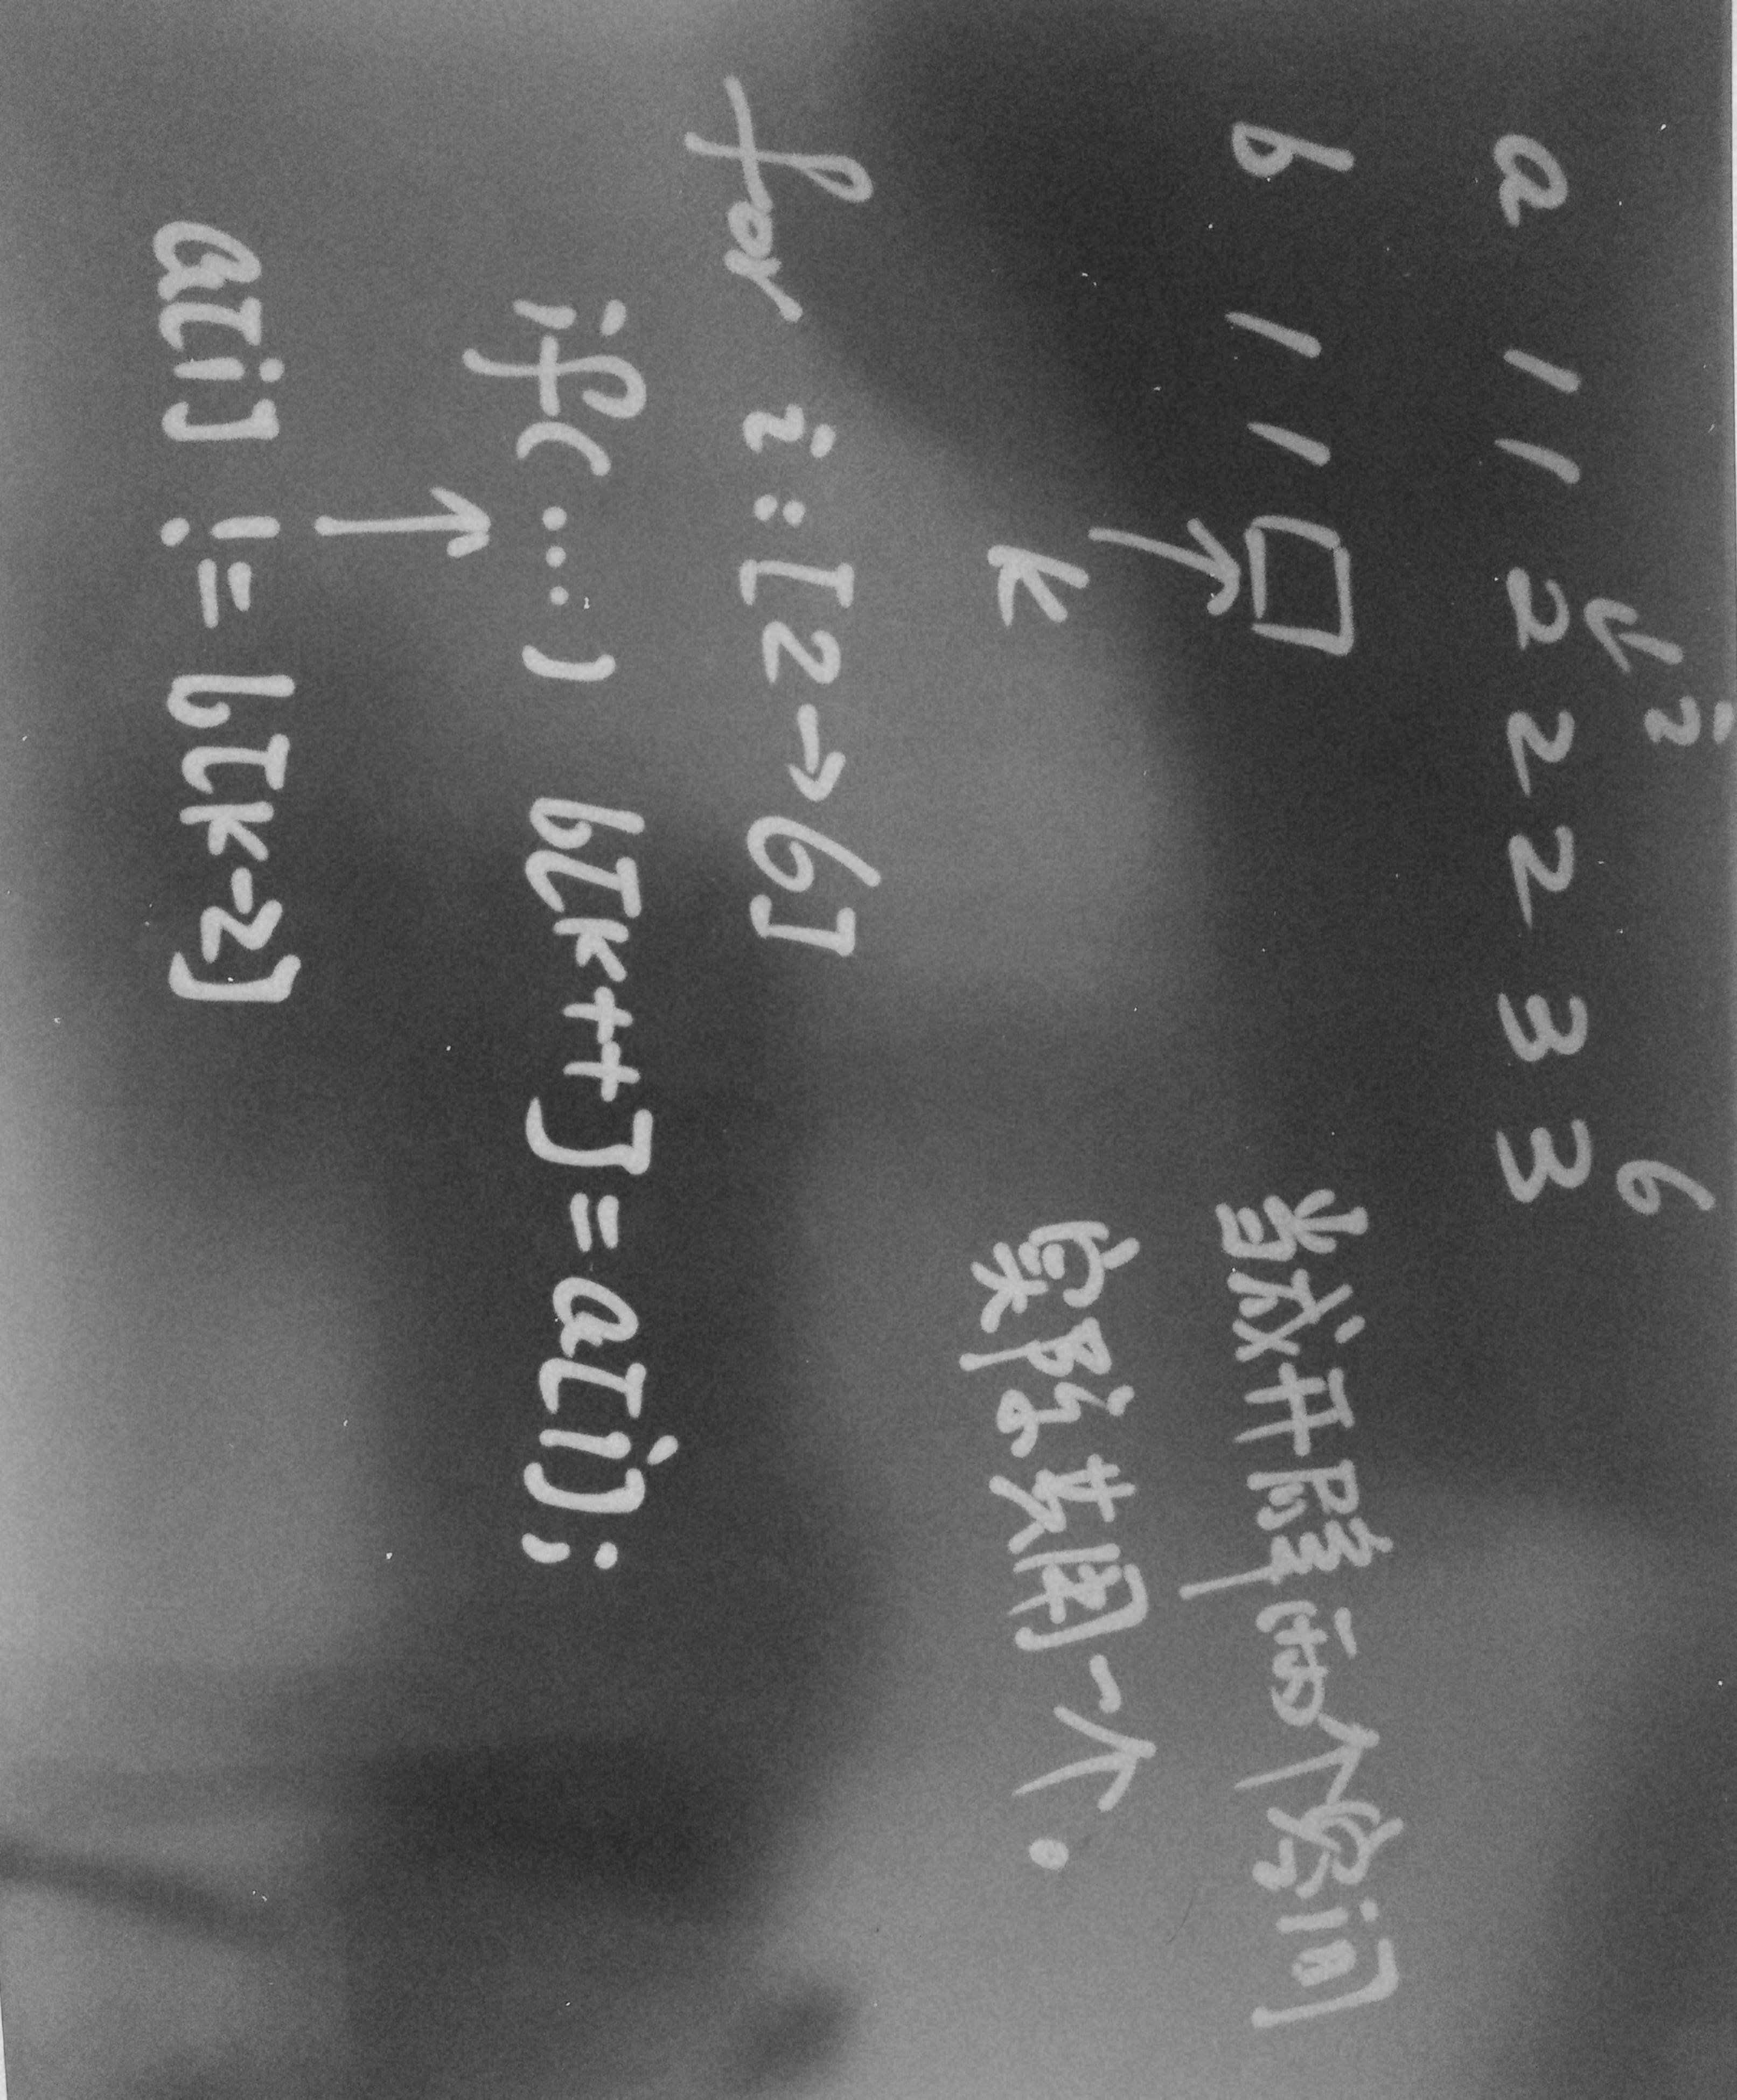 i 6
a 1 1 2 2 2 3 3
b 1 1 当成开辟两个空间
k 实际共用一个。
for i:[2→6]
if(...) b[k++]=a[i];
a[i] != b[k-2]